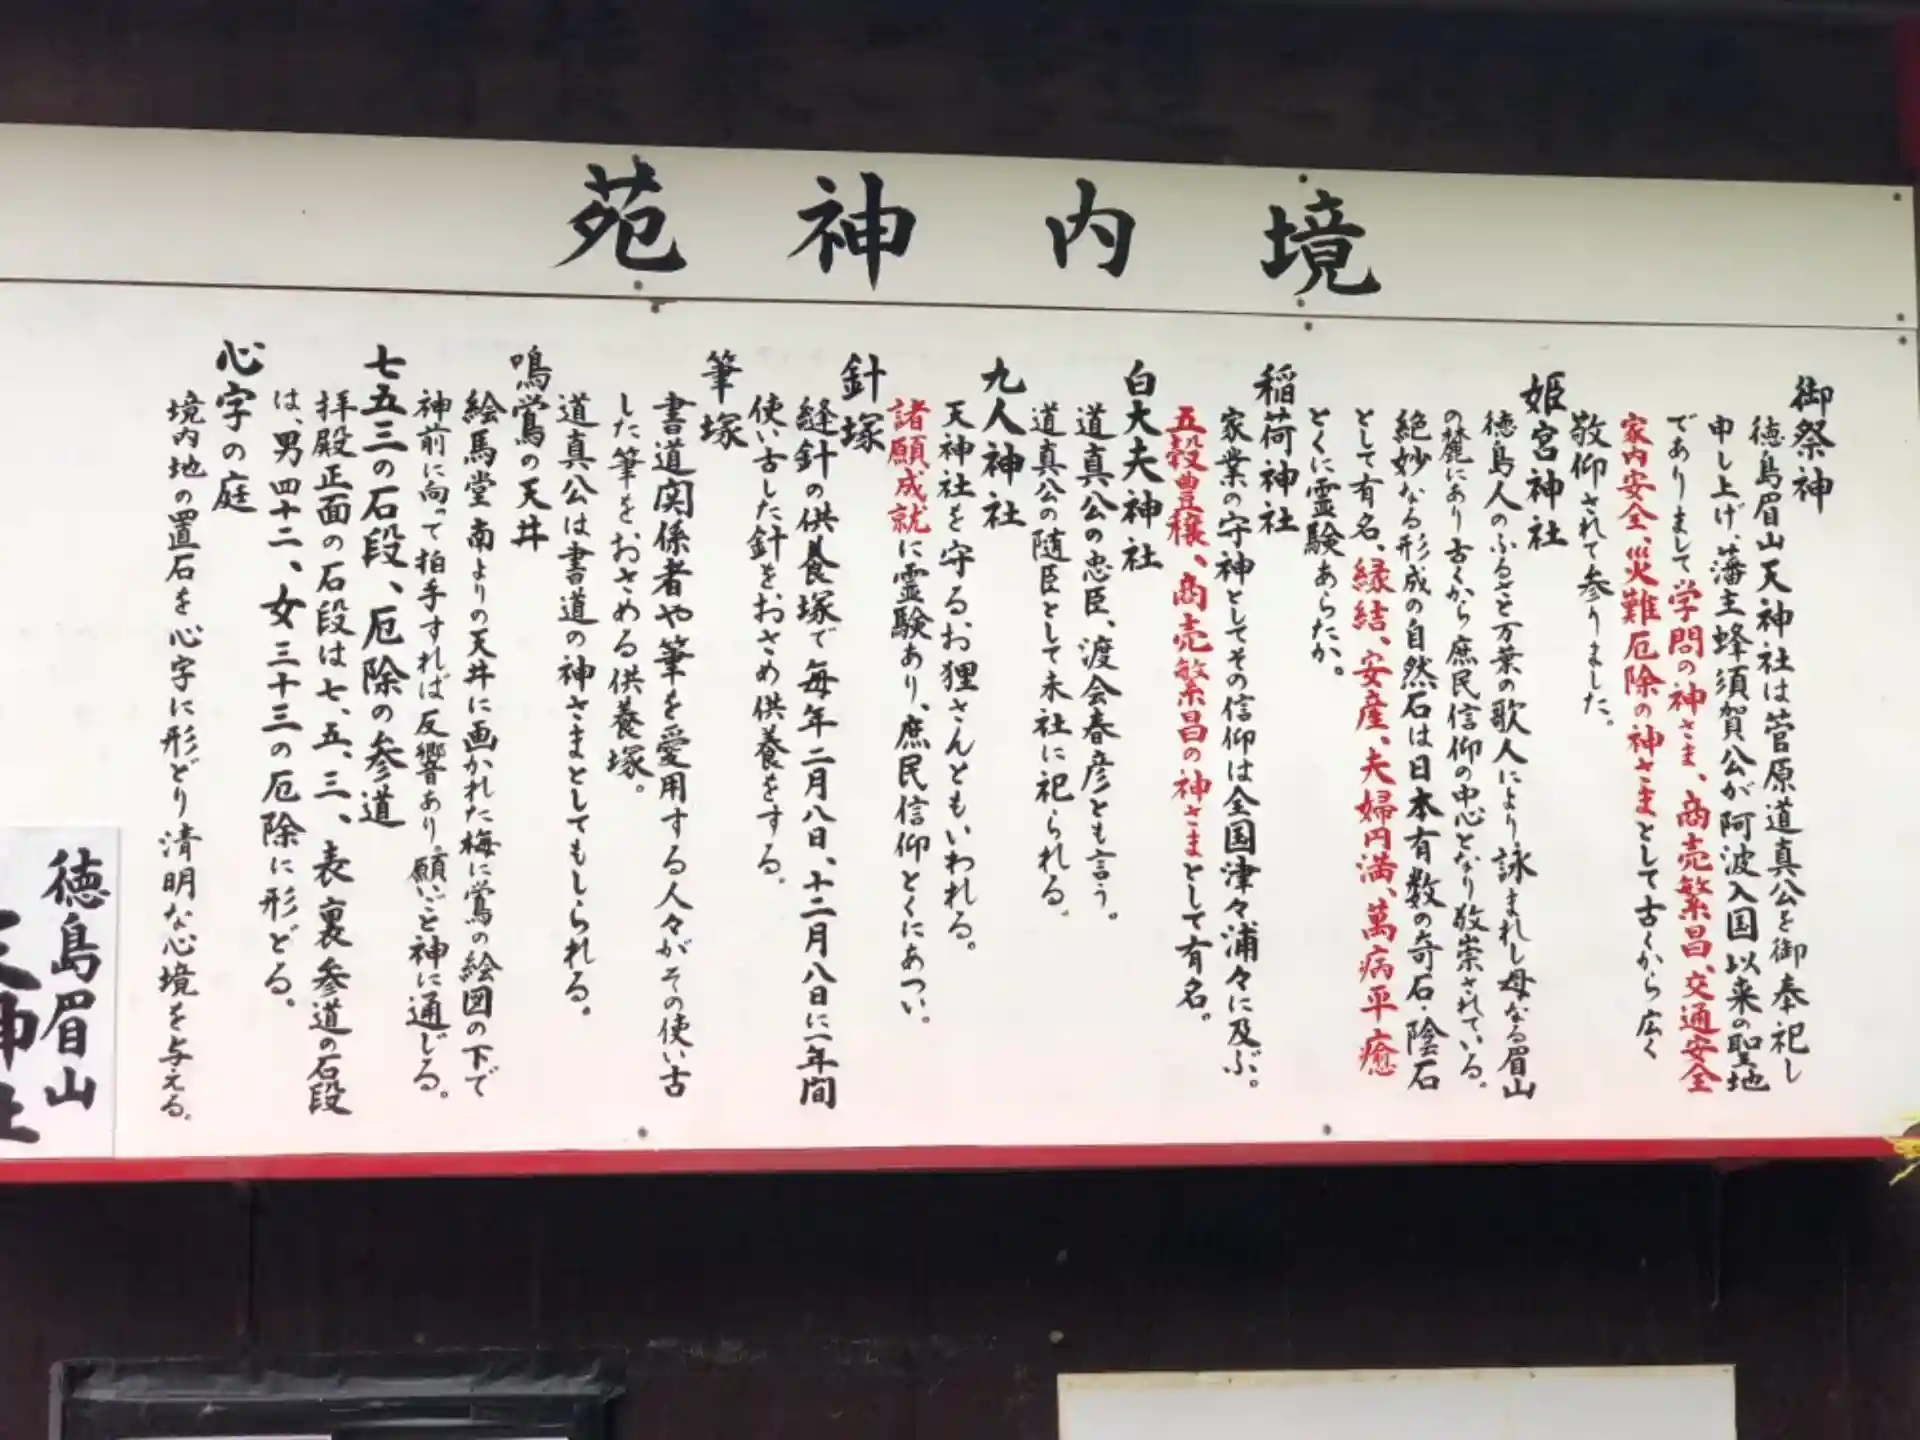 境内神苑
御祭神
徳島眉山天神社は菅原道真公を御奉祀し
申し上げ、藩主蜂須賀公が阿波入国以来の聖地
でありまして学問の神さま、商売繁昌、交通安全
家内安全、災難厄除の神さまとして古くから広く
敬仰されて参りました。
姫宮神社
徳島人のふるさと万葉の歌人により、詠まれし母なる眉山
の麓にあり古くから庶民信仰の中心となり敬崇されている。
絶妙なる形成の自然石は日本有数の奇石・陰石
として有名、縁結、安産、夫婦円満、萬病平癒
とくに霊験あらたか。
稲荷神社
家業の守神としてその信仰は全国津々浦々に及ぶ。
五穀豊穣、商売繁昌の神さまとして有名。
白大夫神社
道真公の忠臣、渡会春彦とも言う。
道真公の随臣として末社に祀られる。
九人神社
天神社を守る、お狸さんともいわれる。
諸願成就に霊験あり、庶民信仰とくにあつい。
針塚
縫針の供養塚で毎年二月八日、十二月八日に一年間
使い古した針をおさめ供養をする。
筆塚
書道関係者や筆を愛用する人々がその使い古
した筆をおさめる供養塚。
道真公は書道の神さまとしてもしられる。
鳴鴬の天井
絵馬堂南よりの天井に画かれた梅に鴬の絵図の下で
神前に向って拍手すれば反響あり。願いごと神に通じる。
七五三の石段、厄除の参道
拝殿正面の石段は七、五、三、表裏参道の石段
は、男四十二、女三十三の厄除に形どる。
心字の庭
境内地の置石を心字に形どり清明な心境を与える。
徳島眉山
天神社